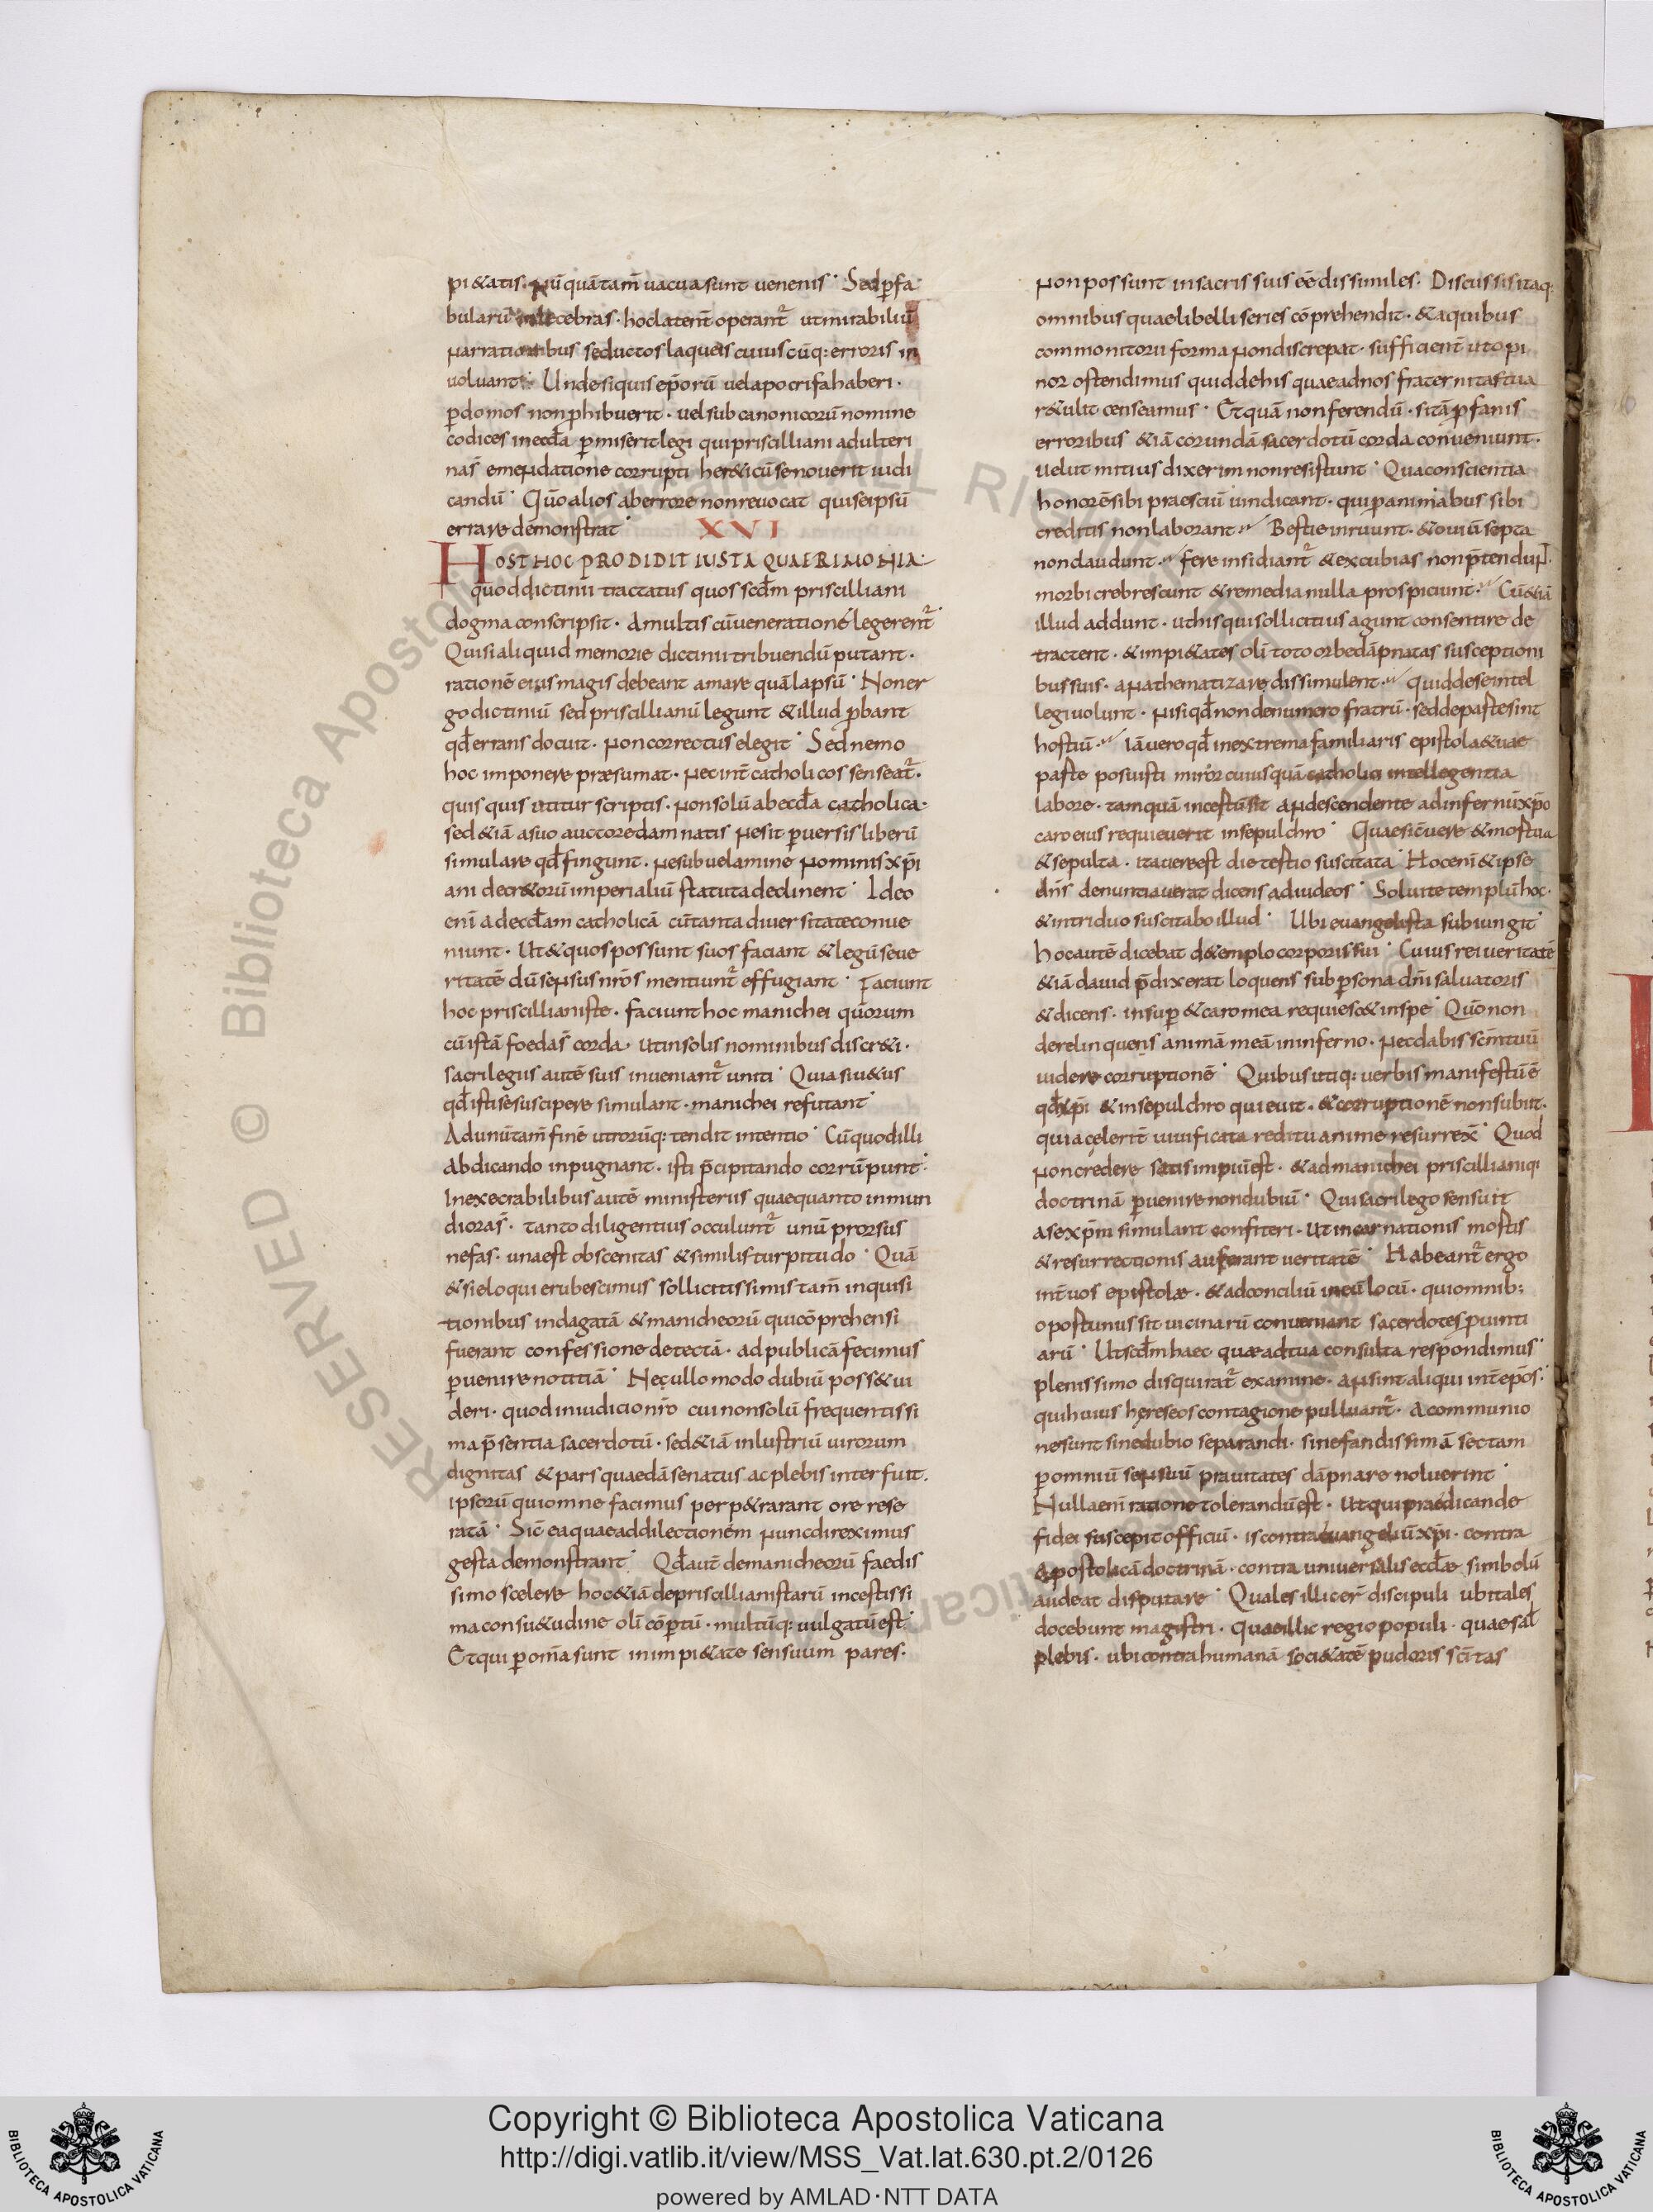 pi&atis. Nū quā tam̄ uacua sunt uenenis. Sed p̄ fa
bularū inlecebras. hoc latent̄ operant᷑ ut mirabiliū
narrationibus seductos laqueis cuiuscūq: erroris in
uoluant. Unde siquis ep̄orū uel apocrifa haberi.
p̄ domos non p̄hibuerit. uel sub canonicorū nomine
codices in eccl̄a p̄miserit legi qui priscilliani adulteri
na s̄ emendatione corrupti her&icū se nouerit iudi
candū. Qūo alios ab errore non reuocat qui se ipsū
errare demonstrat. XVI
HOST HOC PRODIDIT IUSTA QUAERIMONIA
quod dictinii tractatus quos scd̄m priscilliani
dogma conscripsit. A multis cū ueneratione legerent᷑
Qui si aliquid memorie dictinii tribuendū putant.
rationē eius magis debeant amare quā lapsū. Non er
go dictiniū sed priscillianū legunt & illud p̄bant
qd̄ errans docuit. non correctus elegit. Sed nemo
hoc imponere præsumat. nec int̄ catholicos senseat᷑.
quisquis utitur scriptis. non solū ab eccl̄a catholica.
sed &iā a suo auctore damnatis ne sit p̄uersis liberū
simulare qd̄ fingunt. ne sub uelamine nominis xp̄i
ani decr&orū imperialiū statuta declinent. Ideo
enī ad eccl̄am catholicā cū tanta diuersitate conue
niunt. Ut & quos possunt suos faciant & legū seue
ritatē dū se nsus nr̄os mentiunt᷑ effugiant. Faciunt
hoc priscillianiste. faciunt hoc manichei quorum
cū istā foeda s̄ corda. ut in solis nominibus discr&i.
sacrilegiis autē suis inueniant᷑ uniti. Quia si u&us
qd̄ isti se suscipere simulant. manichei refutant
Ad unū tam̄ finē utrorūq: tendit intentio. Cū quod illi
abdicando inpugnant. isti p̄cipitando corrūpunt.
In execrabilibus autē ministeriis quae quanto inmun
diora s̄. tanto diligentius occulunt᷑ unū prorsus
nefas. una est obscenitas & similis turpitudo. Quā
& si eloqui erubescimus sollicitissimis tam̄ inquisi
tionibus indagatā & manicheorū qui cōprehensi
fuerant confessione detectā. ad publicā fecimus
p̄uenire notitiā. Ne c̨ ullo modo dubiū poss& ui
deri. quod in iudicio nr̄o cui non solū frequentissi
ma p̄sentia sacerdotū. sed &iā inlustriū uirorum
dignitas & pars quaedā senatus ac plebis interfuit.
ipsorū qui omne facimus perp&rarant ore rese
ratā. Sic̄ ea quae ad dilectionem nunc direximus
gesta demonstrant. Qd̄ aut̄ de manicheorū faedis
simo scelere hoc &iā de priscillianistarū incestissi
ma consu&udine olī cōptū. multūq: uulgatū est.
Et qui p̄ om̄a sunt in impi&ate sensuum pares.
Non possunt in sacris suis eē dissimiles. Discussis itaq:
omnibus quae libelli series cōprehendit. & a quibus
commonitorii forma non discrepat. sufficient̄ ut opi
nor ostendimus quid de his quae ad nos fraternitas tua
r&ulit censeamus. Et quā non ferendū. si tā p̄fanis
erroribus &iā corundā sacerdotū corda conueniunt.
uelut mitius dixerim non resistunt. Qua conscientia
honorē sibi praesciū uindicant. qui p̄ animabus sibi
creditis non laborant. Bestie inruunt. & ouiū septa
non claudunt. fere insidiant᷑ & excubias non p̄tendunt.
morbi crebrescunt & remedia nulla prospiciunt. Cū &iā
illud addunt. ut his qui sollicitius agunt consentire de
tractent. & impi&ates olī toto orbe dāpnatas susceptioni
bus suis. anathematizare dissimulent. quid de se intel
legi uolunt. nisi qd̄ non de numero fratrū. sed de paste sint
hostiū. Iā uero qd̄ in extrema familiaris epistolae uae
paste posuisti miror cuiusquā catholici intellegentia
labore. tamquā incestū sit an descendente ad infernū xp̄o
caro eius requieuerit in sepulchro. Quae sic̄ uere & mostua
& sepulta. ita uere est die testio suscitata. Hoc enī & ipse
dn̄s denuntiauerat dicens ad iudeos. Soluite templū hoc.
& in triduo suscitabo illud. Ubi euangelista subiungit
hoc autē dicebat d& emplo corporis sui. Cuius rei ueritatē
&iā dauid p̄dixerat loquens sub p̄sona dn̄i saluatoris
& dicens. insup̄ & caro mea requiesc& in spe. Qūo non
derelinquens animā meā in inferno. nec dabis sc̄m tuū
uidere corruptionē. Quibus utiq: uerbis manifestū ē
qd̄ xp̄i & in sepulchro quieuit. & corruptionē non subiit.
quia celerit̄ uiuificata reditu anime resurrex̄. Quod
non credere satis impiū est. & ad manichei priscillianiq:
doctrinā p̄uenire non dubiū. Qui sacrilego sensu it
a se xp̄m simulant confiteri. ut incarnationis mostis
& resurrectionis auferant ueritatē. Habeant᷑ ergo
int̄ uos epistolæ. & ad conciliū in eū locū. qui omnib:
opostunus sit uicinarū conueniant sacerdotes p̄uinti
arū. Ut scd̄m haec quæ ad tua consulta respondimus
plenissimo disquirat᷑ examine. an sint aliqui int̄ ep̄os.
qui huius hereseos contagione polluant᷑. A communio
ne sunt sine dubio separandi. si nefandissimā sectam
p̄ omniū sensuū prauitates dāpnare noluerint
Nulla enī ratione tolerandū est. Ut qui praedicande
fidei suscepit officiū. is contra euangeliū xp̄i. contra
apostolicā doctrinā. contra uniuersalis eccl̄æ simbolū
audeat disputare. Quales illic er̄ discipuli ubi tales
docebunt magistri. Quae illic regio populi. quae sal̄
plebis. ubi contra humanā soci&atē pudoris sc̄itas
Copyright © Biblioteca Apostolica Vaticana
http://digi.vatlib.it/view/MSS_Vat.lat.630.pt.2/0126
powered by AMLAD·NTT DATA
BIBLIOTECA APOSTOLICA VATICANA
BIBLIOTECA APOSTOLICA VATICANA